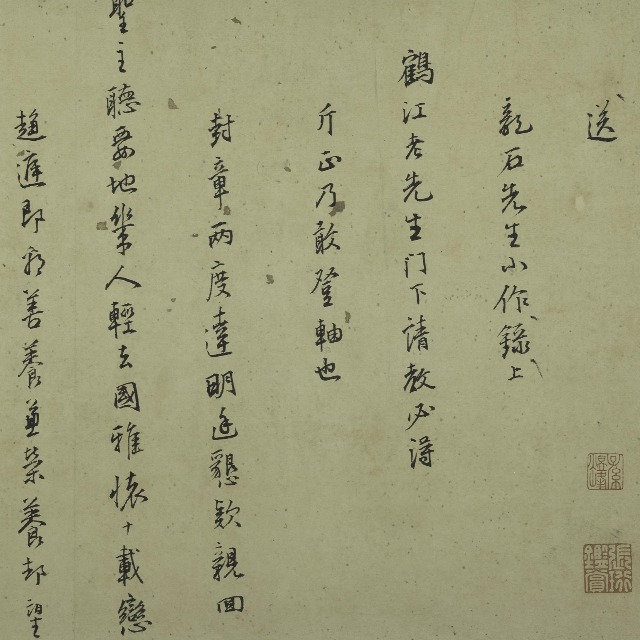 送
龍石先生小作錄上
鶴江老先生門下請教必得
斤正乃敢登軸也
封章兩度達明廷懇欵親回
聖主聽要地幾人輕去國雅懷十載戀
趨庭即商善養兼榮養却望